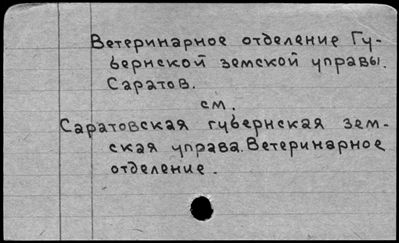 Ветеринарное отделение Гу-
бернской земской управы.
Саратов.
см.
Саратовская губернская зем-
ская управа. Ветеринарное
отделение.